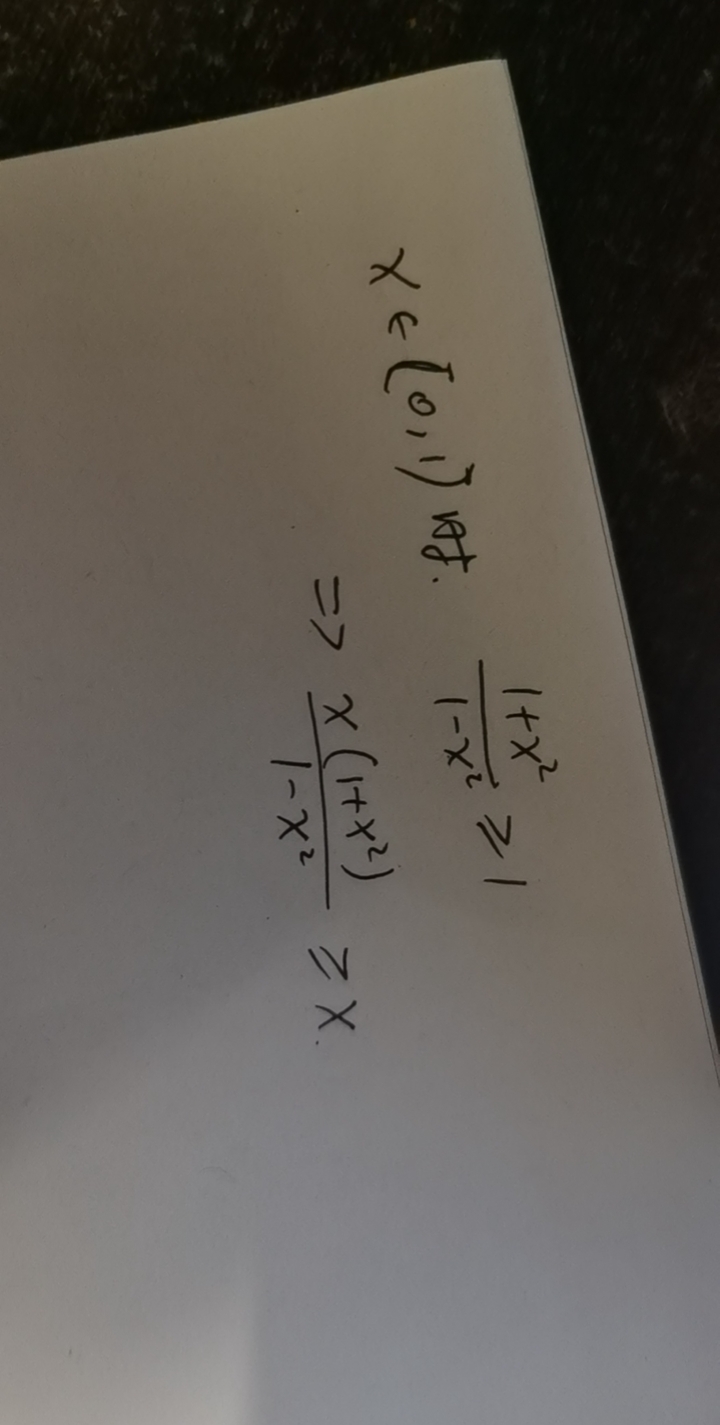 x ∈ [0,1) (1+x²)/(1-x²) ≥ 1
=> x(1+x²)/(1-x²) ≥ x